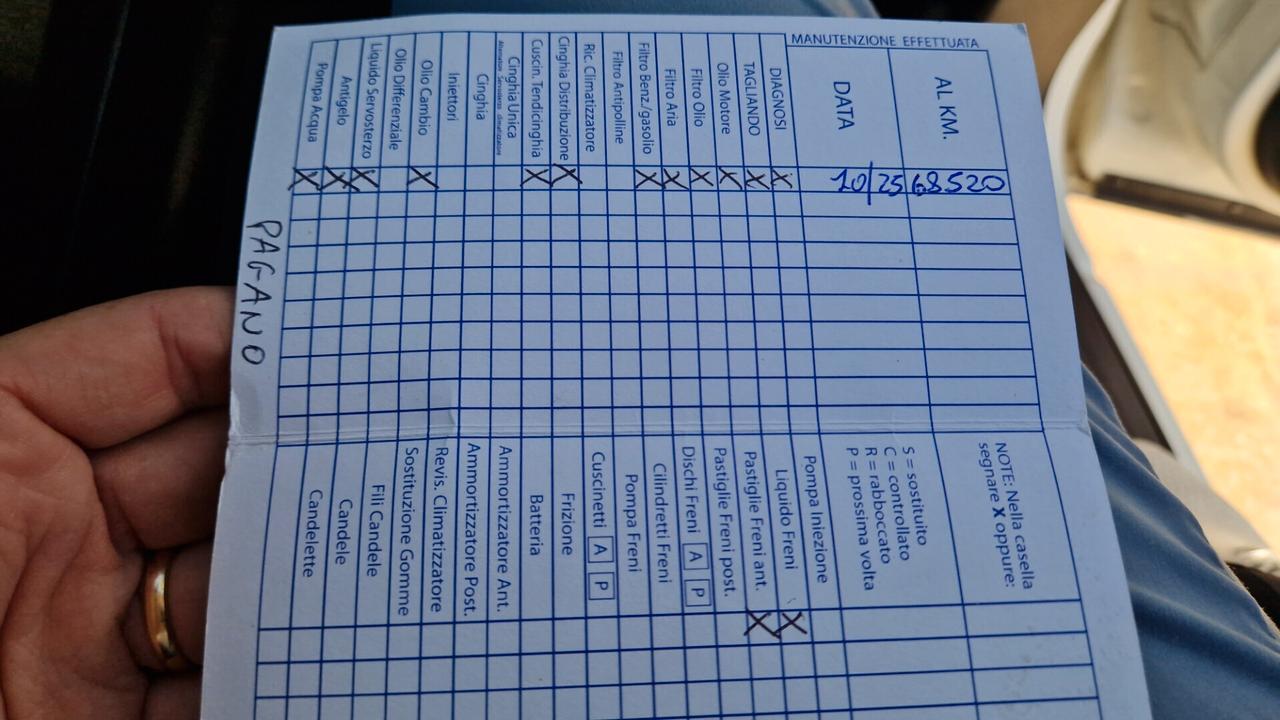 MANUTENZIONE EFFETTUATA
AL KM. 68520
DATA 10/25
DIAGNOSI X
TAGLIANDO X
Olio Motore X
Filtro Olio X
Filtro Aria X
Filtro Benz./gasolio X
Filtro Antipolline
Ric. Climatizzatore
Cinghia Distribuzione X
Cuscin. Tendicinghia X
Cinghia Unica
Alternatore Servosterzo climatizzatore
Cinghia
Iniettori
Olio Cambio X
Olio Differenziale
Liquido Servosterzo X
Antigelo X
Pompa Acqua X
PAGANO
NOTE: Nella casella
segnare X oppure:
S = sostituito
C = controllato
R = rabboccato
P = prossima volta
Pompa Iniezione
Liquido Freni X
Pastiglie Freni ant. X
Pastiglie Freni post.
Dischi Freni A P
Cilindretti Freni
Pompa Freni
Cuscinetti A P
Frizione
Batteria
Ammortizzatore Ant.
Ammortizzatore Post.
Revis. Climatizzatore
Sostituzione Gomme
Fili Candele
Candele
Candelette